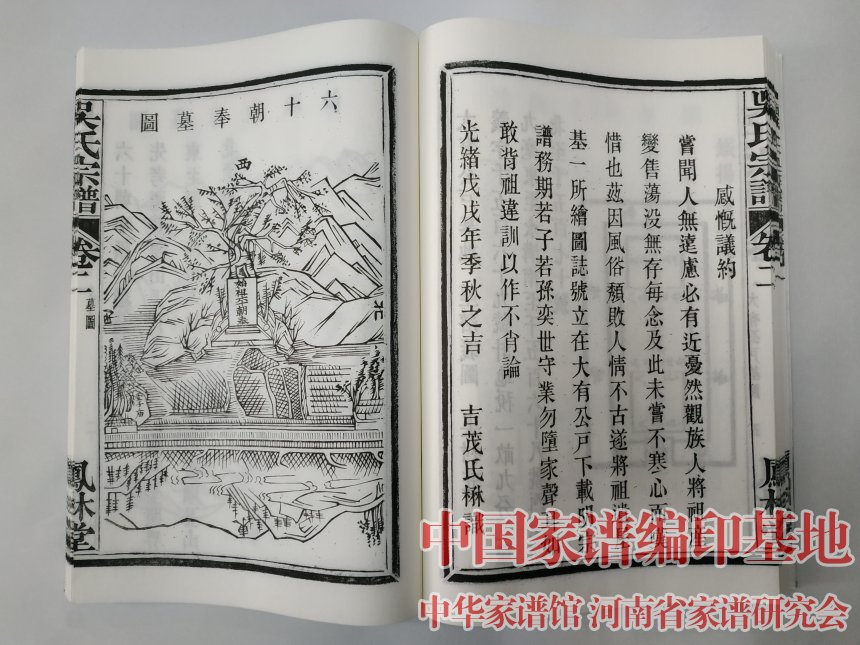 吳氏宗譜 卷二
感慨議約
嘗聞人無遠慮必有近憂然觀族人將祖產
變售蕩没無存每念及此未嘗不寒心而
惜也茲因風俗頹敗人情不古遂將祖遺
基一所繪圖誌號立在大有公戶下載明
譜務期若子若孫奕世守業勿墮家聲
敢背祖違訓以作不肖論
光緒戊戌年季秋之吉 吉茂氏楙識
六十朝奉墓圖
西
吳氏宗譜 卷二 墓圖 鳳林堂
中国家谱编印基地
中华家谱馆 河南省家谱研究会